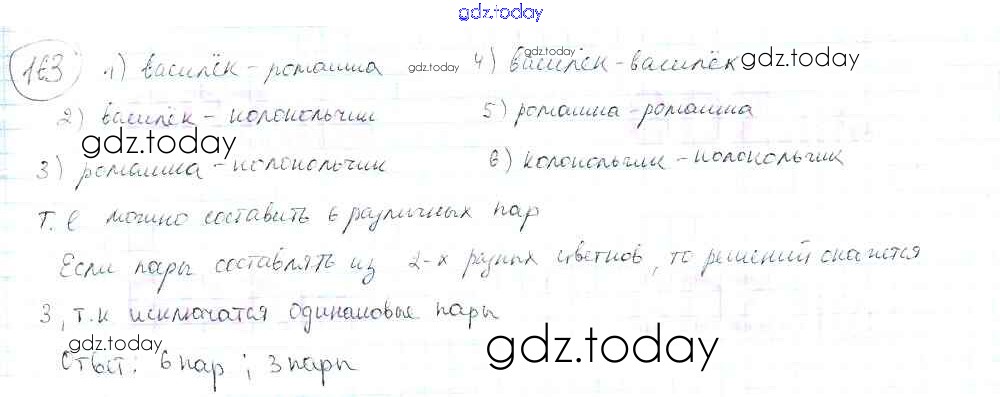 gdz.today
163 1) василёк - ромашка gdz.today 4) василёк - василёк gdz.today gdz.today
2) василёк - колокольчик 5) ромашка - ромашка
gdz.today
3) ромашка - колокольчик 6) колокольчик - колокольчик
т. е можно составить 6 различных пар
Если пары составлять из 2-х разных цветков, то решений окажется
3, т.к исключатся одинаковые пары
gdz.today gdz.today
Ответ: 6 пар ; 3 пары